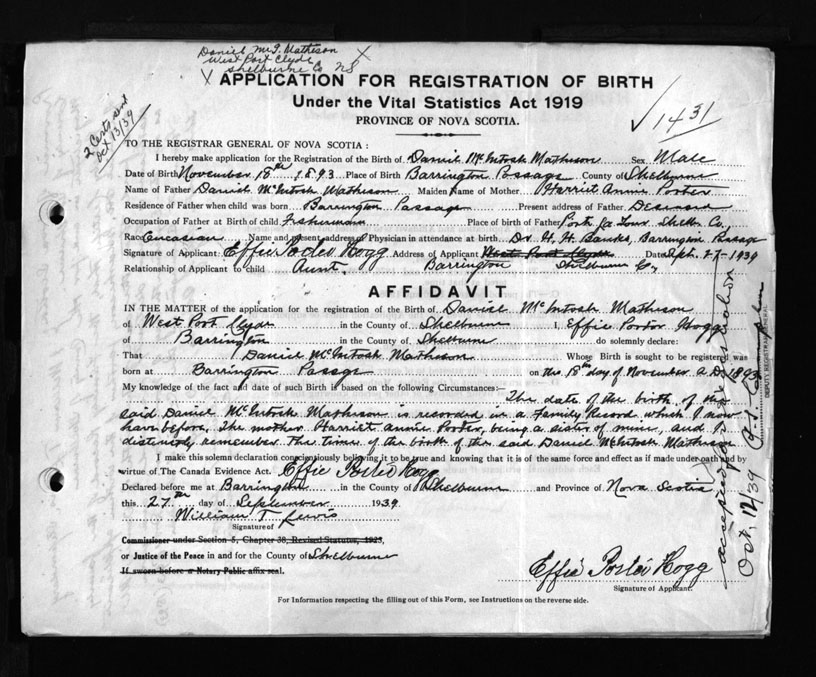 Daniel McI. Matheson
West Port Clyde
Shelburne Co NS
APPLICATION FOR REGISTRATION OF BIRTH
Under the Vital Statistics Act 1919
PROVINCE OF NOVA SCOTIA.
1431
2 Certs sent
Oct 13/39
TO THE REGISTRAR GENERAL OF NOVA SCOTIA:
I hereby make application for the Registration of the Birth of Daniel McIntosh Matheson Sex Male
Date of Birth November 18th 1893 Place of Birth Barrington Passage County of Shelburne
Name of Father Daniel McIntosh Matheson Maiden Name of Mother Harriet Annie Porter
Residence of Father when child was born Barrington Passage Present address of Father Deceased
Occupation of Father at Birth of child Fisherman Place of birth of Father Port La Tour Shelb. Co,
Race Caucasian Name and present address of Physician in attendance at birth Dr. H. H. Banks, Barrington Passage
Signature of Applicant: Effie Porter Hogg Address of Applicant West Port Clyde Date Sept. 27-1939
Relationship of Applicant to child Aunt. Barrington Shelburne Co,
AFFIDAVIT
IN THE MATTER of the application for the registration of the Birth of Daniel McIntosh Matheson
of West Port Clyde in the County of Shelburne I, Effie Porter Hogg
of Barrington in the County of Shelburne do solemnly declare:
That Daniel McIntosh Matheson Whose Birth is sought to be registered was
born at Barrington Passage on the 18th day of November A.D. 1893
My knowledge of the fact and date of such Birth is based on the following Circumstances:— The date of the birth of the
said Daniel McIntosh Matheson is recorded in a Family Record which I now
have before, The mother Harriet Annie Porter, being a sister of mine, and I
distinctly remember the time of the birth of the said Daniel McIntosh Matheson
I make this solemn declaration conscientiously believing it to be true and knowing that it is of the same force and effect as if made under oath and by
virtue of The Canada Evidence Act. Effie Porter Hogg
Declared before me at Barrington in the County of Shelburne and Province of Nova Scotia
this 27th day of September 1939
William T. Lewis
Signature of
Commissioner under Section 5, Chapter 38, Revised Statutes, 1923,
or Justice of the Peace in and for the County of Shelburne
If sworn before a Notary Public affix seal.
Effie Porter Hogg
Signature of Applicant.
For Information respecting the filling out of this Form, see Instructions on the reverse side.
accepted for registration
Oct. 12/39
DEPUTY REGISTRAR GENERAL